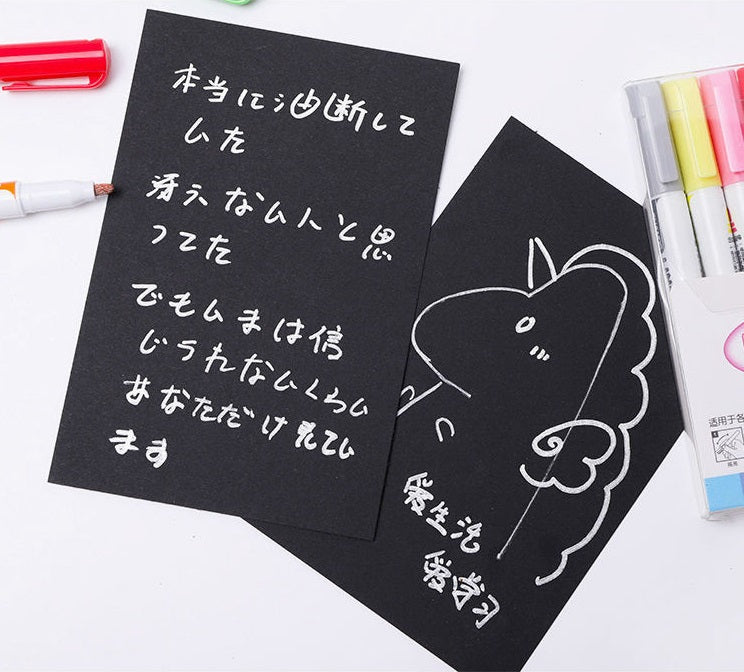 本当に油断して
いた
冴えない人と思
ってた
でもいまは信
じられないくらい
あなただけ見てい
ます
爱生活
爱学习
适用于各